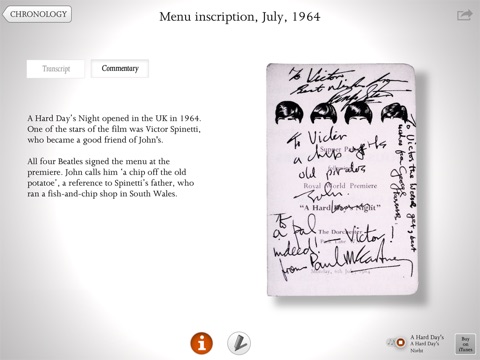 CHRONOLOGY
Menu inscription, July, 1964
Transcript
Commentary
A Hard Day's Night opened in the UK in 1964.
One of the stars of the film was Victor Spinetti,
who became a good friend of John's.
All four Beatles signed the menu at the
premiere. John calls him 'a chip off the old
potatoe', a reference to Spinetti's father, who
ran a fish-and-chip shop in South Wales.
To Victor,
Best Wishes from
To Victor
a chip
old
Supper
Royal World Premiere
John
"A Hard Day's Night"
To
a pal
The Dorchester
indeed! — Victor!
from Paul McCartney
Monday, 6th July, 1964
To Victor the
best
wishes from George
Harrison
A Hard Day's
A Hard Day's
Night
Buy
on
iTunes